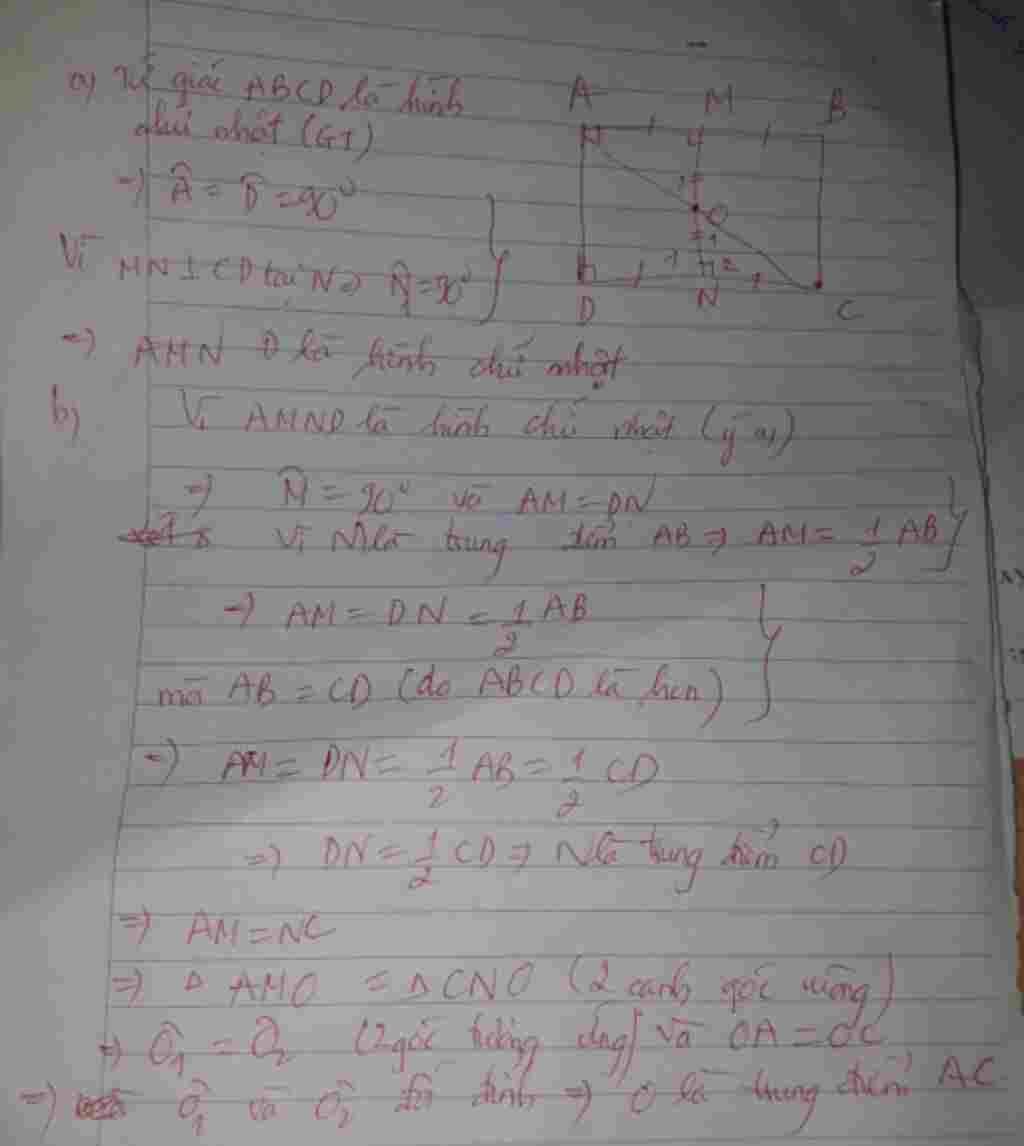 a) Tứ giác ABCD là hình
chữ nhật (GT)
=) Â = D̂ = 90°
Vì MN ⊥ CD tại N => N̂₁ = 90°
=) AMND là hình chữ nhật
A M B
O
1
1 2
D N C
b) Vì AMND là hình chữ nhật (ý a)
=) M̂ = 90° và AM = DN
Vì M là trung điểm AB => AM = 1/2 AB
=) AM = DN = 1/2 AB
mà AB = CD (do ABCD là hcn)
=) AM = DN = 1/2 AB = 1/2 CD
=) DN = 1/2 CD => N là trung điểm CD
=) AM = NC
=) Δ AMO = Δ CNO (2 cạnh góc vuông)
=) Ô₁ = Ô₂ (2 góc tương ứng) và OA = OC
=) Ô₁ và Ô₂ đối đỉnh =) O là trung điểm AC